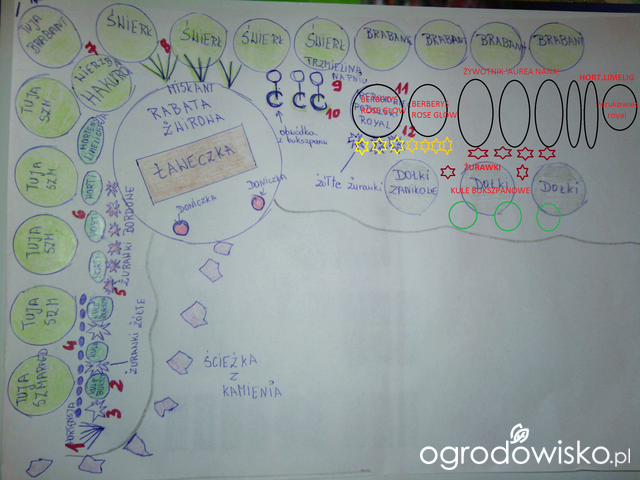 TUJA
BRABANT
ŚWIERK
ŚWIERK
ŚWIERK
ŚWIERK
BRABANT
BRABANT
BRABANT
BRABANT
7
8
WIERZBA
HAKURO
MISKANT
RABATA
ŻWIROWA
ŁAWECZKA
DONICZKA
DONICZKA
TRZMIELINA
NA PNIU
9
10
obwódka
z bukszpanu
11
BERBERYS
ROSE GLOW
ROYAL
BERBERYS
ROSE GLOW
12
ŻYWOTNIK 'AUREA NANA'
HORT.LIMELIG
royal
żółte żurawki
DOŁKI
ZANIKOWE
ŻURAWKI
DOŁKI
KULE BUKSZPANOWE
DOŁKI
TUJA
SZM
TUJA
SZM
TUJA
SZM
TUJA
SZM
TUJA
SZMARAGD
HORTENSJA
LIMELIGHT
HORT
HORT
HORT
6
ŻURAWKI BORDOWE
5
4
ŻURAWKI ŻÓŁTE
KULE
KULE
2
3
1
ŚCIEŻKA
Z
KAMIENIA
ogrodowisko.pl